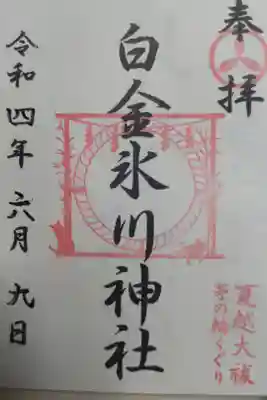 奉拝
白金氷川神社
令和四年六月九日
夏越大祓
茅の輪くぐり